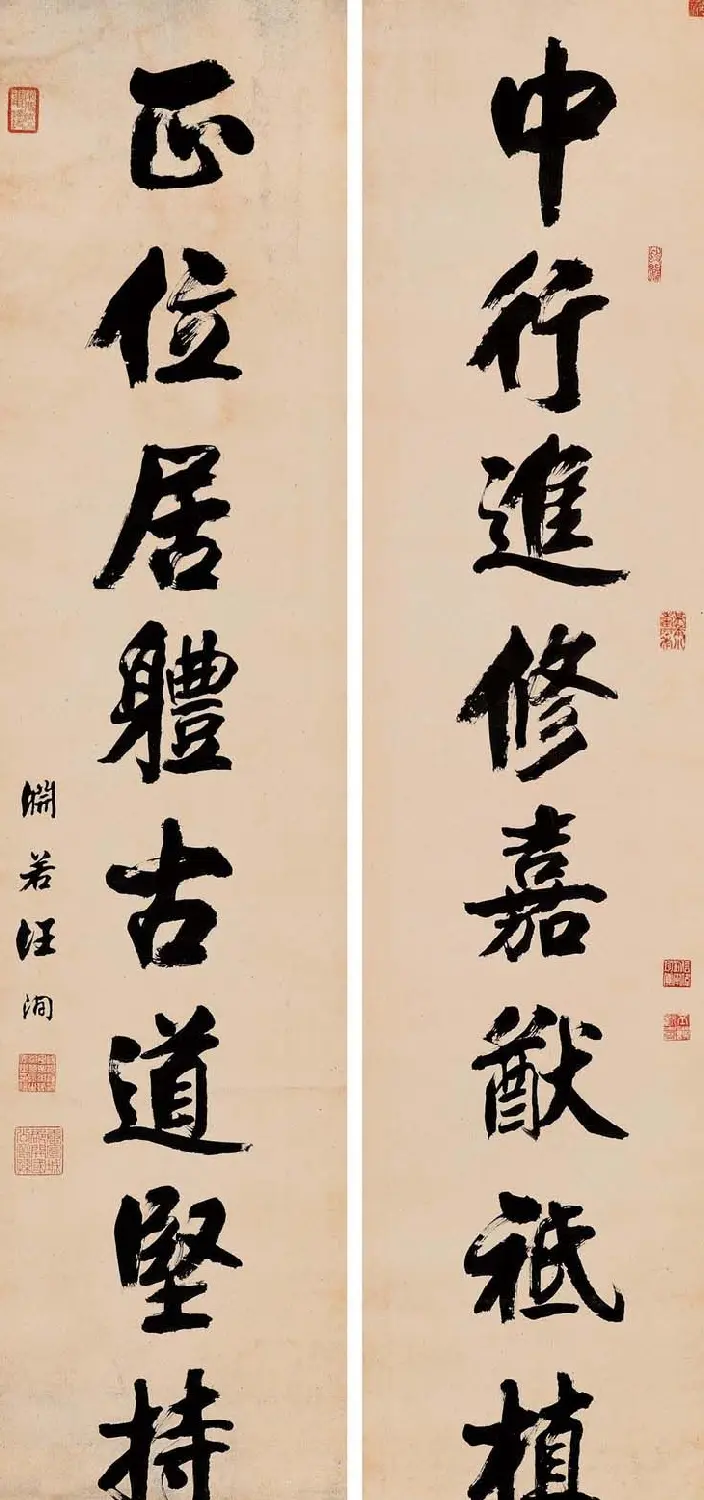 中行進修嘉猷祗植
正位居體古道堅持
淵若汪洵